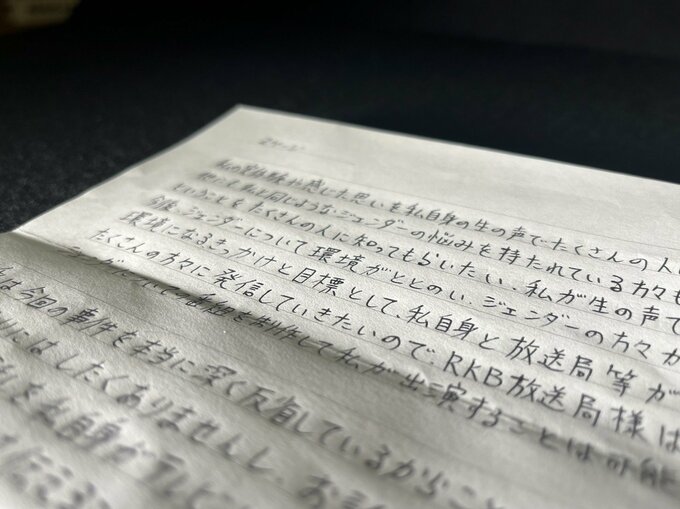 私の実体験や感じた思いを私自身の生の声でたくさんの人に
私と同じようなジェンダーの悩みを持たれている方々も
ということをたくさんの人に知ってもらいたい、私が生の声で
今後、ジェンダーについて環境がととのい、ジェンダーの方々が
環境になるきっかけと目標として、私自身と放送局等が
たくさんの方々に発信していきたいのでRKB放送局様は
を制作して私が出演することは可能
は今回の事件を本当に深く反省しているからこそ
にはしたくありませんし、
私自身が